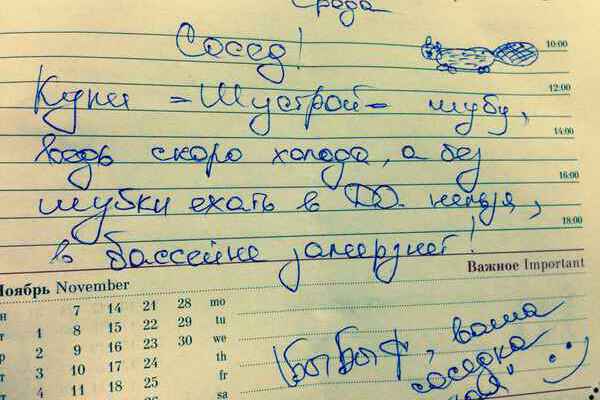 Среда
Сосед!
10:00
Купи - Шустрой - шубу,
12:00
ведь скоро холода, а без
14:00
шубки ехать в Д.О. нельзя,
16:00
в бассейне замерзнет!
18:00
Важное Important
Ноябрь November
7 14 21 28 mo
1 8 15 22 29 tu
2 9 16 23 30 we
3 10 17 24 th
4 11 18 25 fr
sa
ваша
соседка